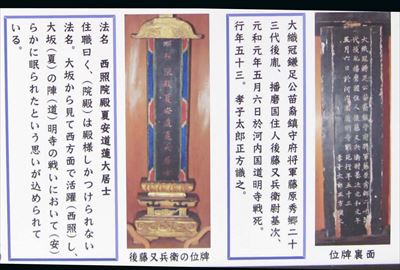 大織冠鎌足公苗裔鎮守府将軍藤原秀郷二十
三代後胤、播磨国住人後藤又兵衛尉基次、
元和元年五月六日於河内国道明寺戦死。
行年五十三。孝子太郎正方識之。
位牌裏面
法名 西照院殿夏安道蓮大居士
住職曰く、(院殿)は殿様しかつけられない
法名。大坂から見て西方面で活躍(西照)し、
大坂(夏)の陣(道)明寺の戦いにおいて(安)
らかに眠られたという思いが込められて
いる。
後藤又兵衛の位牌